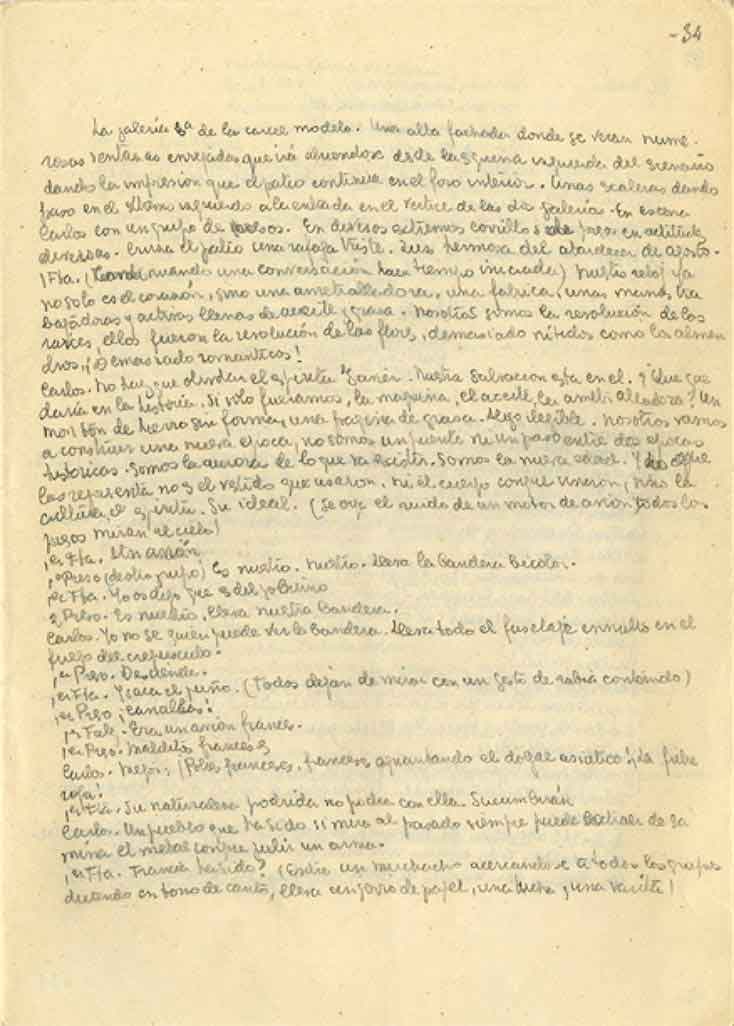 - 34
La galería 3ª de la carcel modelo. Una alta fachada donde se veran nume-
rosas ventanas enrejadas que irá abriendose desde la esquina izquierda del scenario
dando la impresion que el patio continua en el foro interior. Unas scaleras dando
paso en el ultimo izquierdo a la entrada en el vertice de las dos galerías. En escena
Carlos con un grupo de presos. En diversos extremos corrillos de presos en actitudes
diversas. Cruza el patio una rafaga triste. Luz hermosa del atardecer de agosto.
1 Fta. (Continuando una conversación hace tiempo iniciada) Nuestro reloj ya
no solo es el corazón, sino una ametralladora, una fabrica, unas manos tra
bajadoras y activas llenas de aceite y grasa. Nosotros somos la revolución de las
raices, ellos fueron la revolución de las flores, demasiado nitidos como los almen
dros, ¡Demasiado romanticos!
Carlos. No hay que olvidar el espiritu Nuestra salvacion esta en el. ¿Que que
daría en la historia. Si solo fueramos, la maquina, el aceite, la ametralladora? Un
montón de hierro sin forma, una pagina de grasa. Algo ilegible. Nosotros vamos
a construir una nueva epoca, no somos un puente ni un paso entre dos epocas
historicas. Somos la aurora de lo que va existir. Somos la nueva edad. Y lo que
las representa no es el vestido que usaron. ni el cuerpo conque vivieron, sino la
cultura, el espiritu. Su ideal. (Se oye el ruido de un motor de avion, todos los
presos miran al cielo)
1er Fta. Un avión
1er Preso (de otro grupo) Es nuestro. Nuestro. Lleva la bandera bicolor.
1er Fta. Yo os digo que es del gobierno
2 Preso. Es nuestro, lleva nuestra bandera.
Carlos. Yo no se quien puede ver la bandera. Lleva todo el fuselaje envuelto en el
fuego del crepusculo.
1er Preso. Desciende.
1er Fta. Y saca el puño. (Todos dejan de mirar con un gesto de rabia contenido)
1er Preso ¡canallas!
1er Falg. Era un avion frances.
1er Preso. Malditos franceses
Carlos. Mejor, ¡Pobres franceses, franceses aguantando el dogal asiatico! ¡La fiebre
roja!
1er Fta. Su naturaleza podrida no podra con ella. Sucumbirán
Carlos. Un pueblo que ha sido si mira al pasado siempre puede extraer de la
mina el metal conque pulir un arma.
1er Fta. Francia ha sido? (Entra un muchacho acercandose a todos los grupos
diciendo en tono de canto, lleva un gorro de papel, una y una varita)